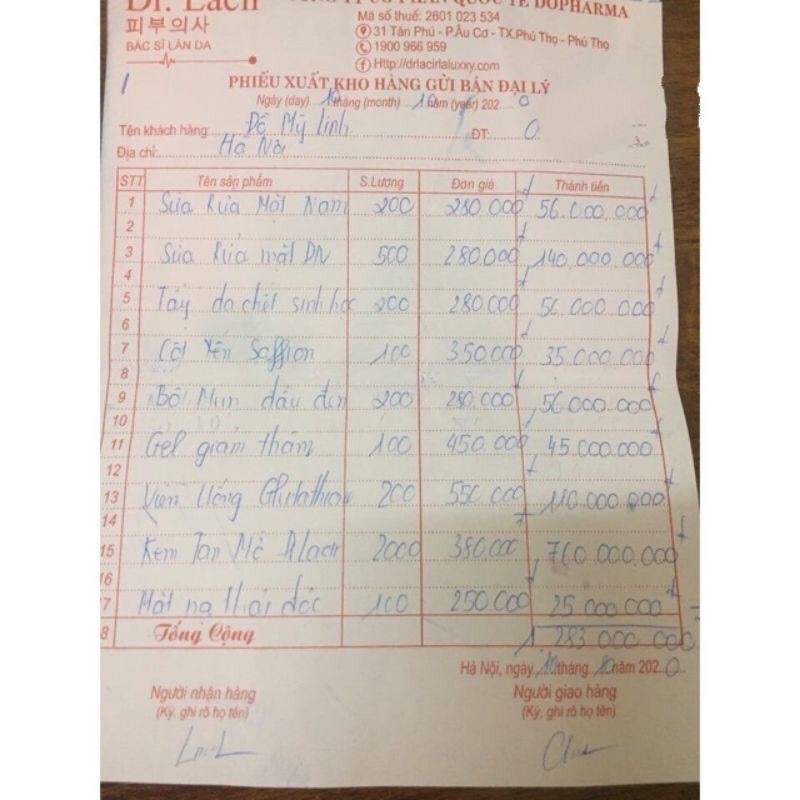 Dr. Lacir
CÔNG TY CỔ PHẦN QUỐC TẾ DOPHARMA
피부의사
BÁC SĨ LÀN DA
Mã số thuế: 2601 023 534
31 Tân Phú - P.Âu Cơ - TX.Phú Thọ - Phú Thọ
1900 966 959
Http://drlacirlaluxxy.com
PHIẾU XUẤT KHO HÀNG GỬI BÁN ĐẠI LÝ
Ngày (day) 10 tháng (month) 10 năm (year) 2020
Tên khách hàng: Đỗ Mỹ Linh ĐT: 0
Địa chỉ: Hà Nội
STT Tên sản phẩm S.Lượng Đơn giá Thành tiền
1 Sữa Rửa Mặt Nam 200 280.000đ 56.000.000đ
2
3 Sữa Rửa mặt DN 500 280.000đ 140.000.000đ
4
5 Tẩy da chết sinh học 200 280.000đ 56.000.000đ
6
7 Cốt Yến Saffron 100 350.000đ 35.000.000đ
8
9 Bôi Mụn đầu đen 200 280.000đ 56.000.000đ
10
11 Gel giảm thâm 100 450.000đ 45.000.000
12
13 Viên Uống Glutathione 200 550.000đ 110.000.000đ
14
15 Kem Tan Mỡ Dr Lacir 2000 380.000 760.000.000đ
16
17 Mặt nạ thải độc 100 250.000đ 25.000.000đ
18 Tổng Cộng 1.283.000.000đ
Hà Nội, ngày 10 tháng 10 năm 2020
Người nhận hàng Người giao hàng
(Ký, ghi rõ họ tên) (Ký, ghi rõ họ tên)